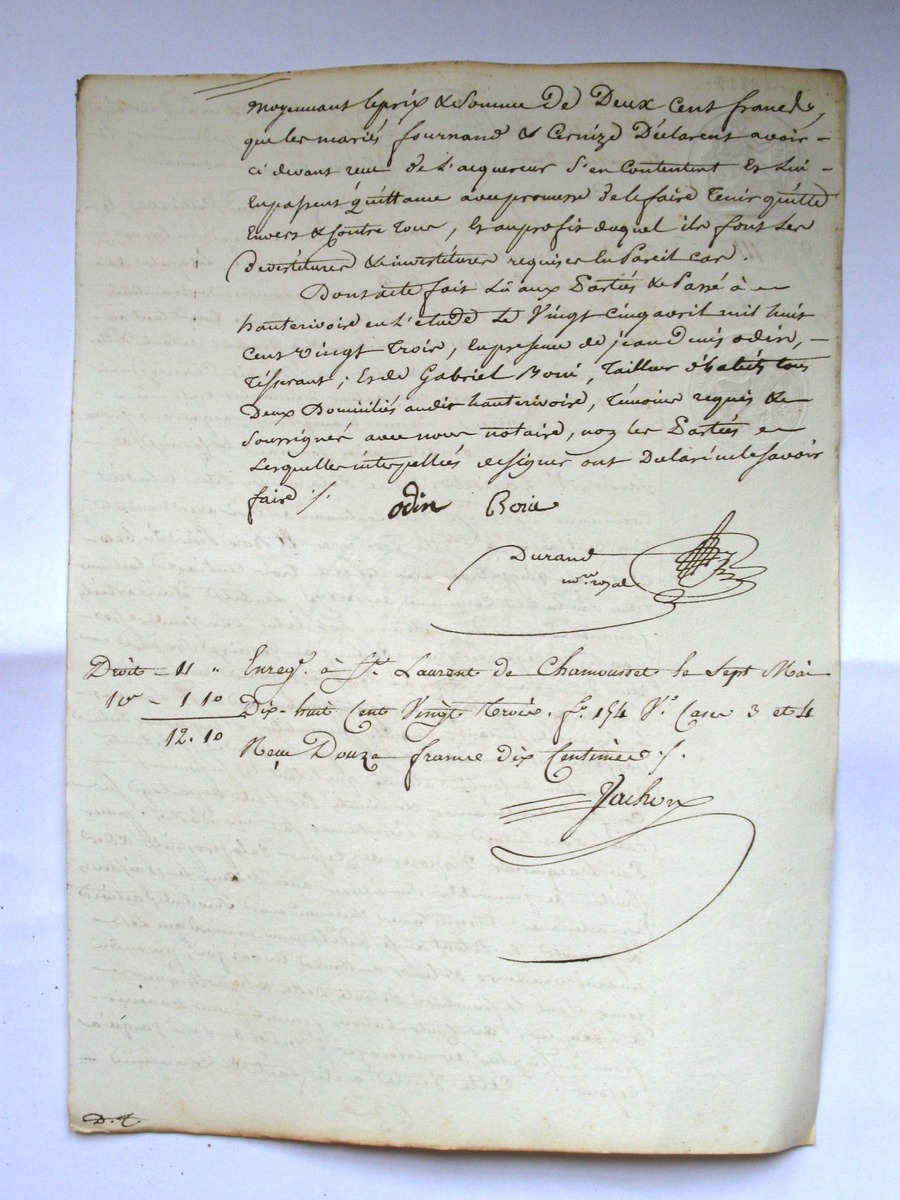 moyennant le prix & somme De Deux cent francs,
que les mariés fournand & Cernize Déclarent avoir –
ci devant reçu de l'acquereur s'en Contentent Et Lui –
En passent quittance avec promesse de le faire Tenir quitte
Envers & Contre Tous, Et au profit duquel ils font Les
Devestitures & investitures requises En Pareil cas.
Dont acte fait Lû aux Parties & Passé à
hauterivoire en l'étude Le Vingt cinq avril mil huit
Cent vingt Trois, En presence de jean Denis odin, –
Tisserant, Et de Gabriel Boui, Tailleur d'habits tous
Deux Domiciliés audit hauterivoire, Témoins requis &
Soussignés avec nous notaire, non les Parties
Lesquelles interpellées de signer ont Déclaré ne le savoir
faire ./.
odin Boui
Durand
nore royal
Droit – 11 "
10e – 1 10
12. 10
Enregé. à St. Laurent de Chamousset le Sept Mai
Dix-huit Cent Vingt Trois. fo. 154 Vo. Cases 3 et 4
Reçu Douze francs dix Centimes ./.
Vachon
D. t.